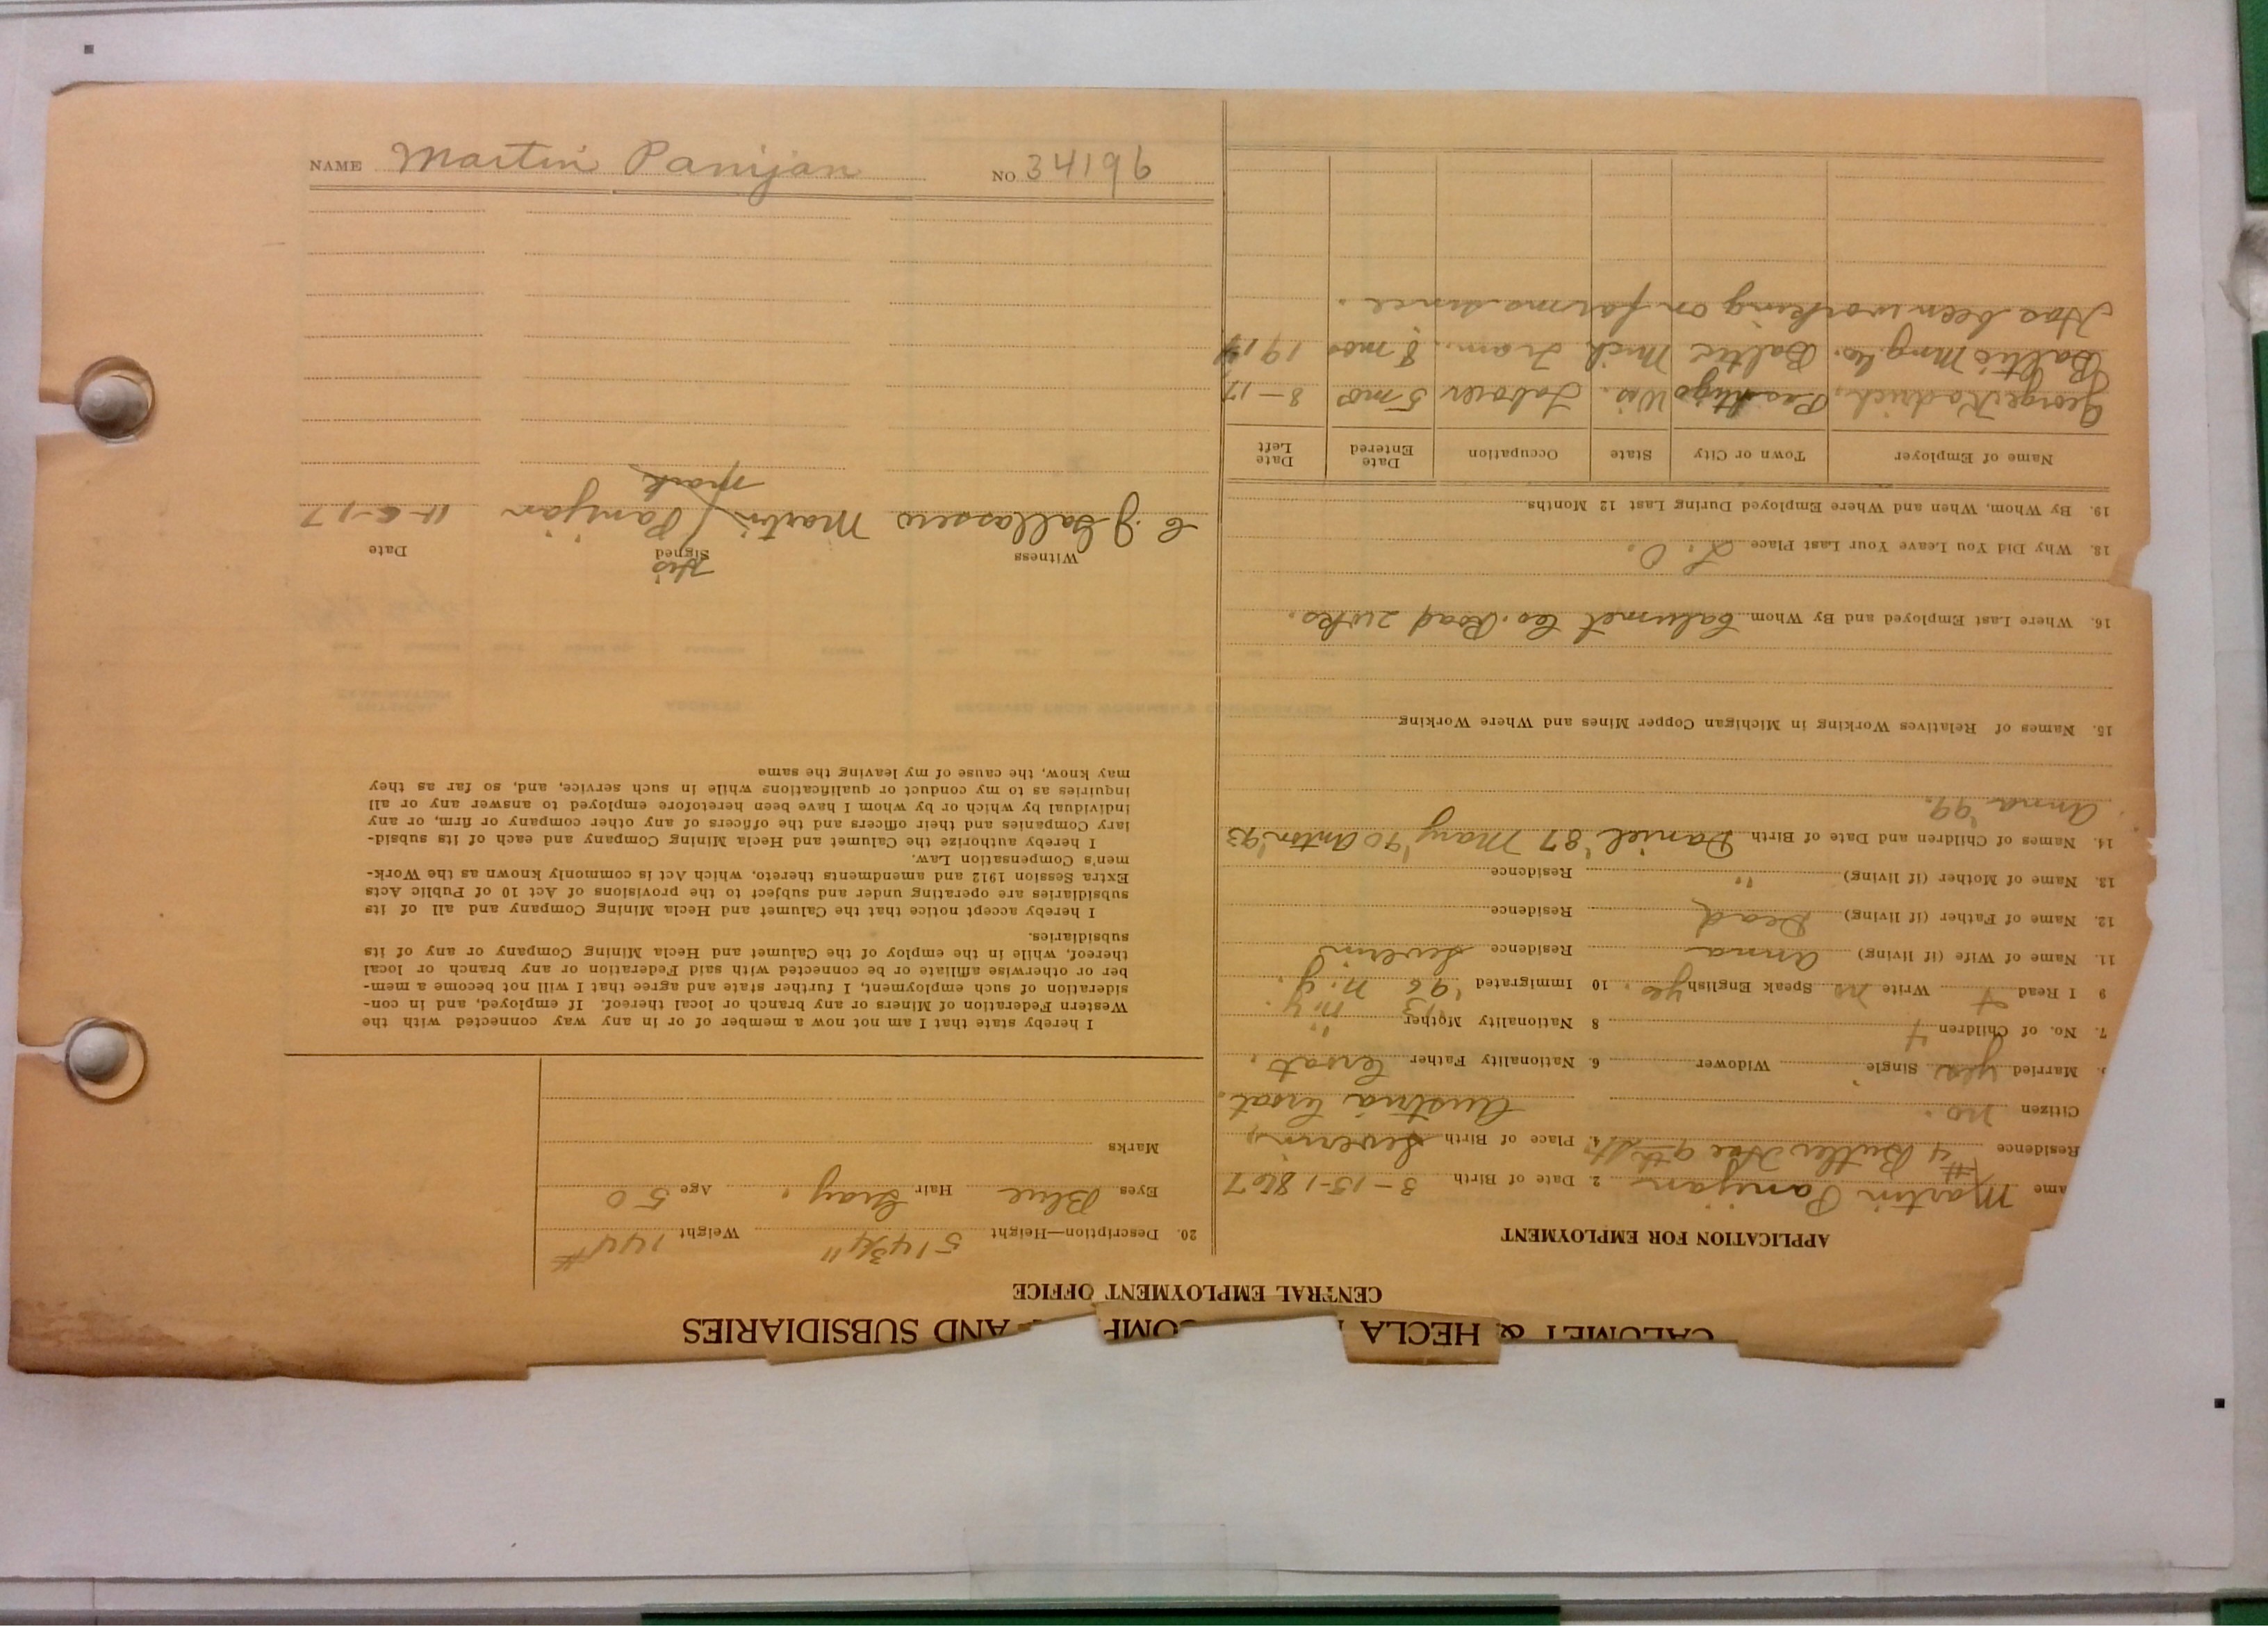 CALUMET & HECLA MINING COMPANY AND SUBSIDIARIES
CENTRAL EMPLOYMENT OFFICE
APPLICATION FOR EMPLOYMENT
ame Martin Panijan 2. Date of Birth 3-15-1867
Residence #4 Butler Hse 9th St. 4. Place of Birth Severin,
Citizen no. Austria Croat.
Married yes Single Widower 6. Nationality Father Croat.
7. No. of Children 4 8 Nationality Mother "
9 I Read Write no Speak English yes. 10 Immigrated '96 N.Y. '13 N.Y.
11. Name of Wife (if living) Anna Residence Severin
12. Name of Father (if living) Dead Residence
13. Name of Mother (if living) " Residence
14. Names of Children and Date of Birth Daniel '87 Mary '90 Anton '93
Anna '99.
15. Names of Relatives Working in Michigan Copper Mines and Where Working
16. Where Last Employed and By Whom Calumet Co. Road 2 wks.
18. Why Did You Leave Your Last Place L.O.
19. By Whom, When and Where Employed During Last 12 Months
Name of Employer Town or City State Occupation Date Entered Date Left
George Kodrich, Peshtigo Wis. Laborer 5 mos 8-17
Baltic Mng. Co. Baltic Mich Tram. 8 mos 1914
Has been working on farms since.
20. Description—Height 5 1 4 3/4" Weight 144#
Eyes Blue Hair Gray. Age 50
Marks
I hereby state that I am not now a member of or in any way connected with the
Western Federation of Miners or any branch or local thereof. If employed, and in con-
sideration of such employment, I further state and agree that I will not become a mem-
ber or otherwise affiliate or be connected with said Federation or any branch or local
thereof, while in the employ of the Calumet and Hecla Mining Company or any of its
subsidiaries.
I hereby accept notice that the Calumet and Hecla Mining Company and all of its
subsidiaries are operating under and subject to the provisions of Act 10 of Public Acts
Extra Session 1912 and amendments thereto, which Act is commonly known as the Work-
men's Compensation Law.
I hereby authorize the Calumet and Hecla Mining Company and each of its subsid-
iary Companies and their officers and the officers of any other company or firm, or any
individual by which or by whom I have been heretofore employed to answer any or all
inquiries as to my conduct or qualifications while in such service, and, so far as they
may know, the cause of my leaving the same
Witness Signed Date
His
C. J. Gallasero Martin / Panijan 11-6-17
mark
NAME Martin Panijan NO. 34196